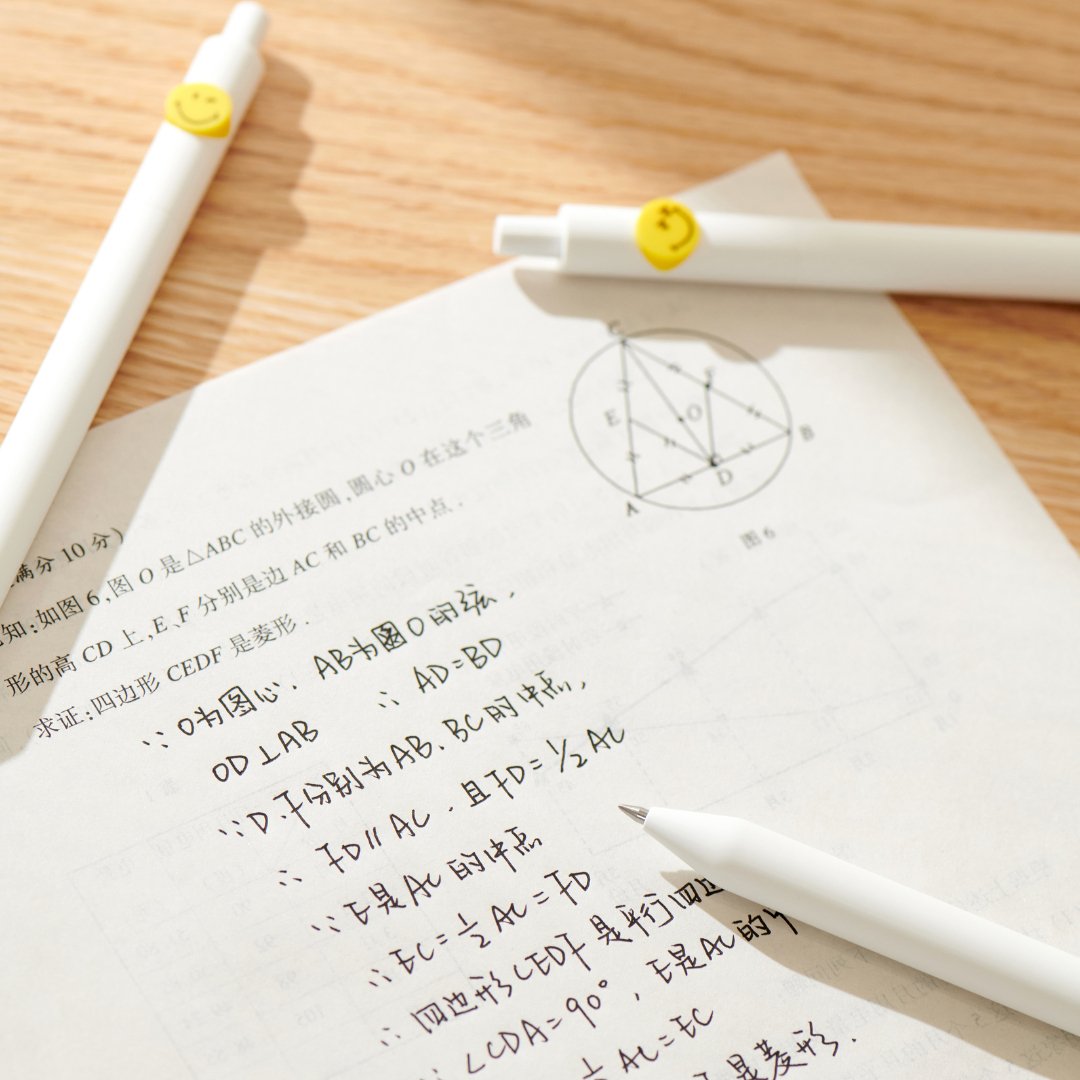 满分 10 分)
知:如图 6,图 O 是△ABC 的外接圆,圆心 O 在这个三角
形的高 CD 上,E、F 分别是边 AC 和 BC 的中点.
求证:四边形 CEDF 是菱形.
C
F
E
O
B
D
A
图 6
∵ O为图心. AB为图O的弦.
OD⊥AB ∴ AD=BD
∵ D.F分别为AB.BC的中点,
∴ FD∥AC.且FD=1/2AC
∵ E是AC的中点
∴ EC=1/2AC=FD
∴ 四边形CEDF是平行四边
∵ ∠CDA=90°,E是AC的
AC=EC
是菱形.